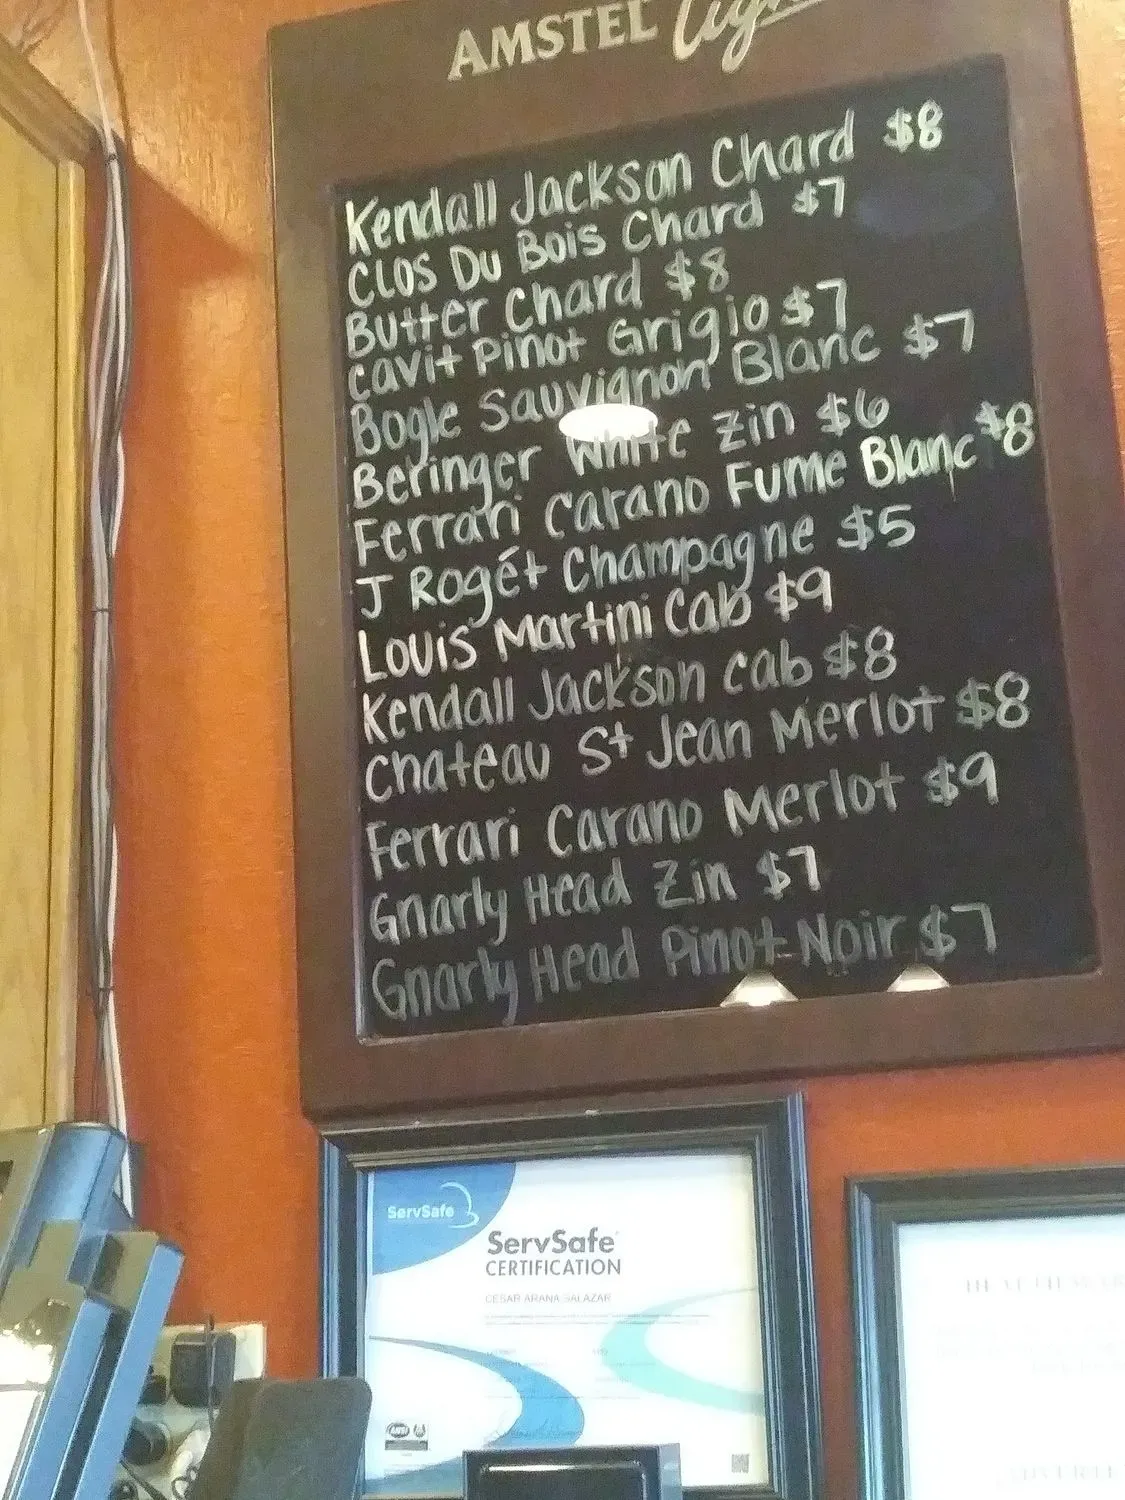 AMSTEL Light
Kendall Jackson Chard $8
Clos Du Bois Chard $7
Butter Chard $8
Cavit Pinot Grigio $7
Bogle Sauvignon Blanc $7
Beringer White Zin $6
Ferrari Carano Fume Blanc $8
J Rogét Champagne $5
Louis Martini Cab $9
Kendall Jackson Cab $8
Chateau St Jean Merlot $8
Ferrari Carano Merlot $9
Gnarly Head Zin $7
Gnarly Head Pinot Noir $7
ServSafe
ServSafe
CERTIFICATION
CESAR ARANA SALAZAR